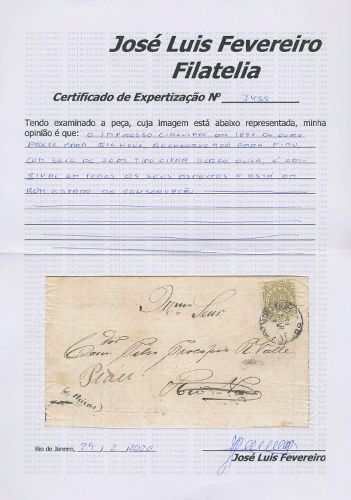 José Luis Fevereiro
Filatelia
Certificado de Expertização Nº 3455
Tendo examinado a peça, cuja imagem está abaixo representada, minha
opinião é que: O IMPRESSO CIRCULADO EM 1890 DE OURO
PRETO PARA RIO NOVO, REENDEREÇADO PARA PIAU,
COM SELO DE 20 RS TIPO CIFRA VERDE OLIVA, É ORI-
GINAL EM TODOS OS SEUS ASPECTOS E ESTÁ EM
BOM ESTADO DE CONSERVAÇÃO
Piau
Rio Novo
Rio de Janeiro, 29 / 2 / 2020
José Luis Fevereiro